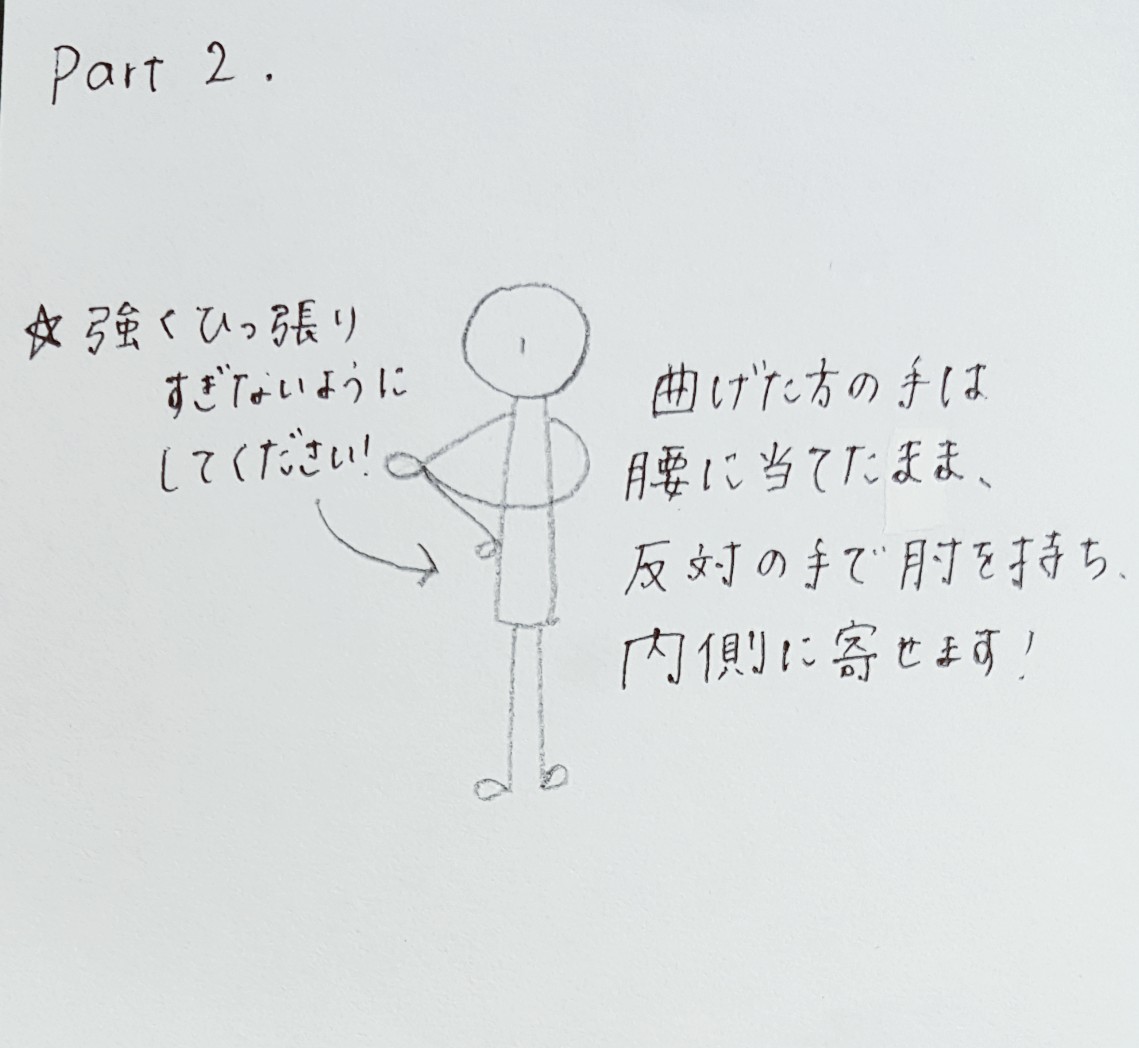 Part 2.
☆ 強くひっ張り
すぎないように
してください!
曲げた方の手は
腰に当てたまま、
反対の手で肘を持ち、
内側に寄せます!